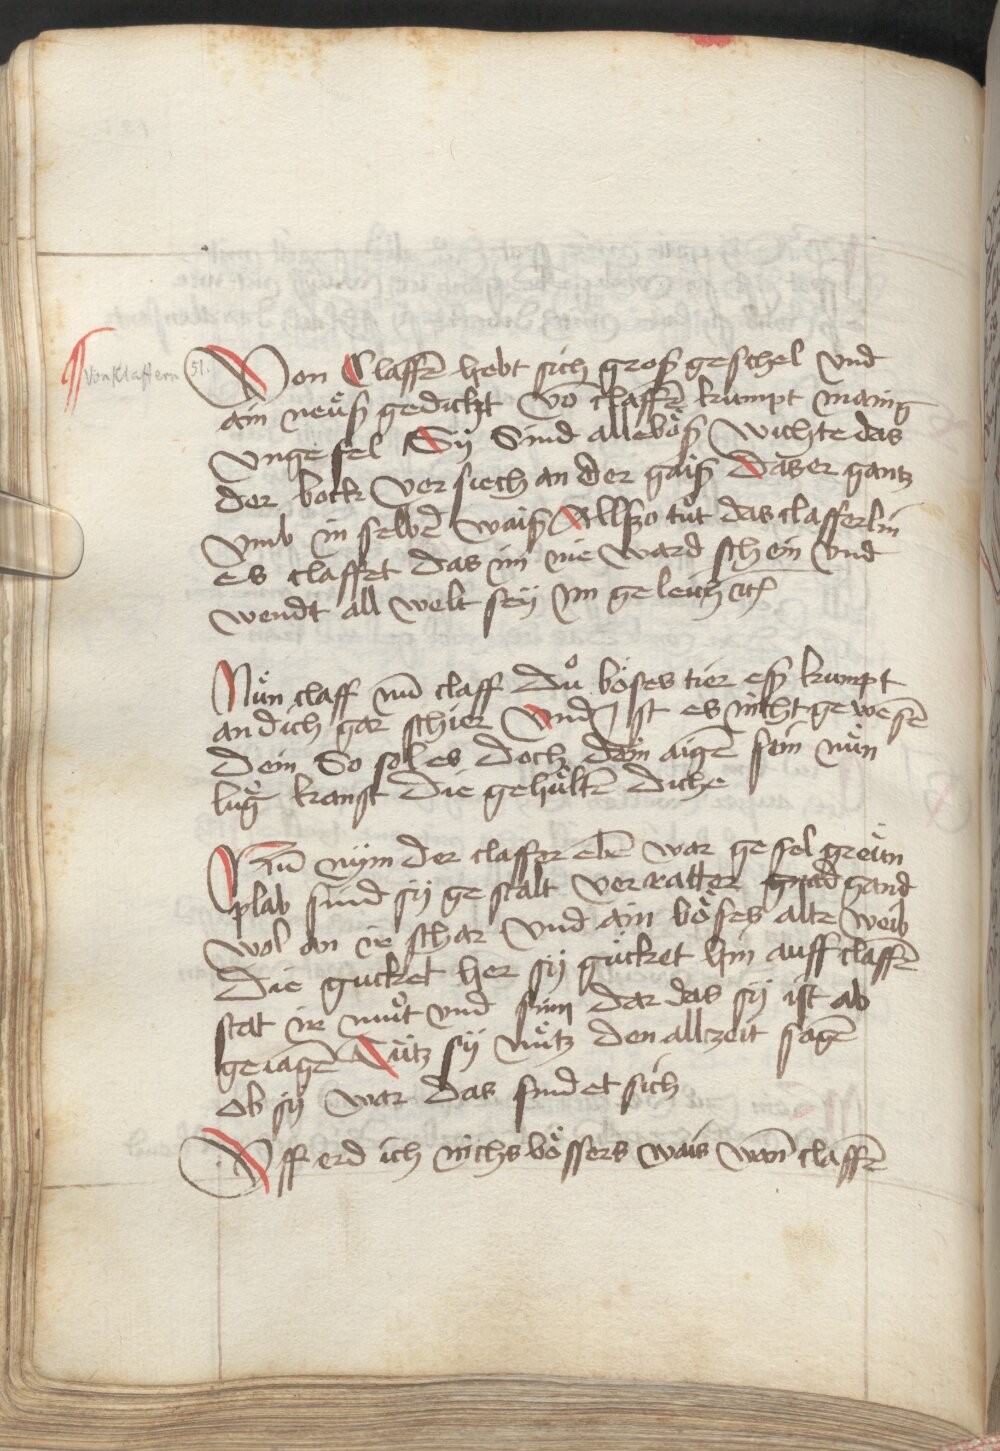 Von Klaffern 51.
Von Claffē hebt sich groß geschel vnd
ain neu̇ß gedicht vō claffē kumpt maing
vngefel Sÿ Sind alle böß wichte das
der bock versiech an der gaiß Daser gantz
vmb in selbē waiß Allßo tu̇t das clafferlin
es claffet das im nie ward schein vnd
wendt all welt seÿ im geleich
Nu̇n claff nu̅ claff du̇ böses tier eß kumpt
an dich gar schier vnd Ist es nicht gewesē
dein So sol es doch dein aigē sein nu̇n
lug kanst die gehu̇ltē diche
Nu̅ nÿm der claffer ebē war gesel greu̇n
plab sind sÿ gestalt verratter gnad gand
wol an ir schar vnd ain böses alte weib
die gucket her sÿ gucket hin auff claffē
stat ir mu̇t vnd sinn dar das sÿ ist ab
geiagē Tu̇tz sÿ nu̇tz den allzeit sagē
ob sÿ war das findet sich
Vff erd ich nichs bössers wais wan̄ claffē